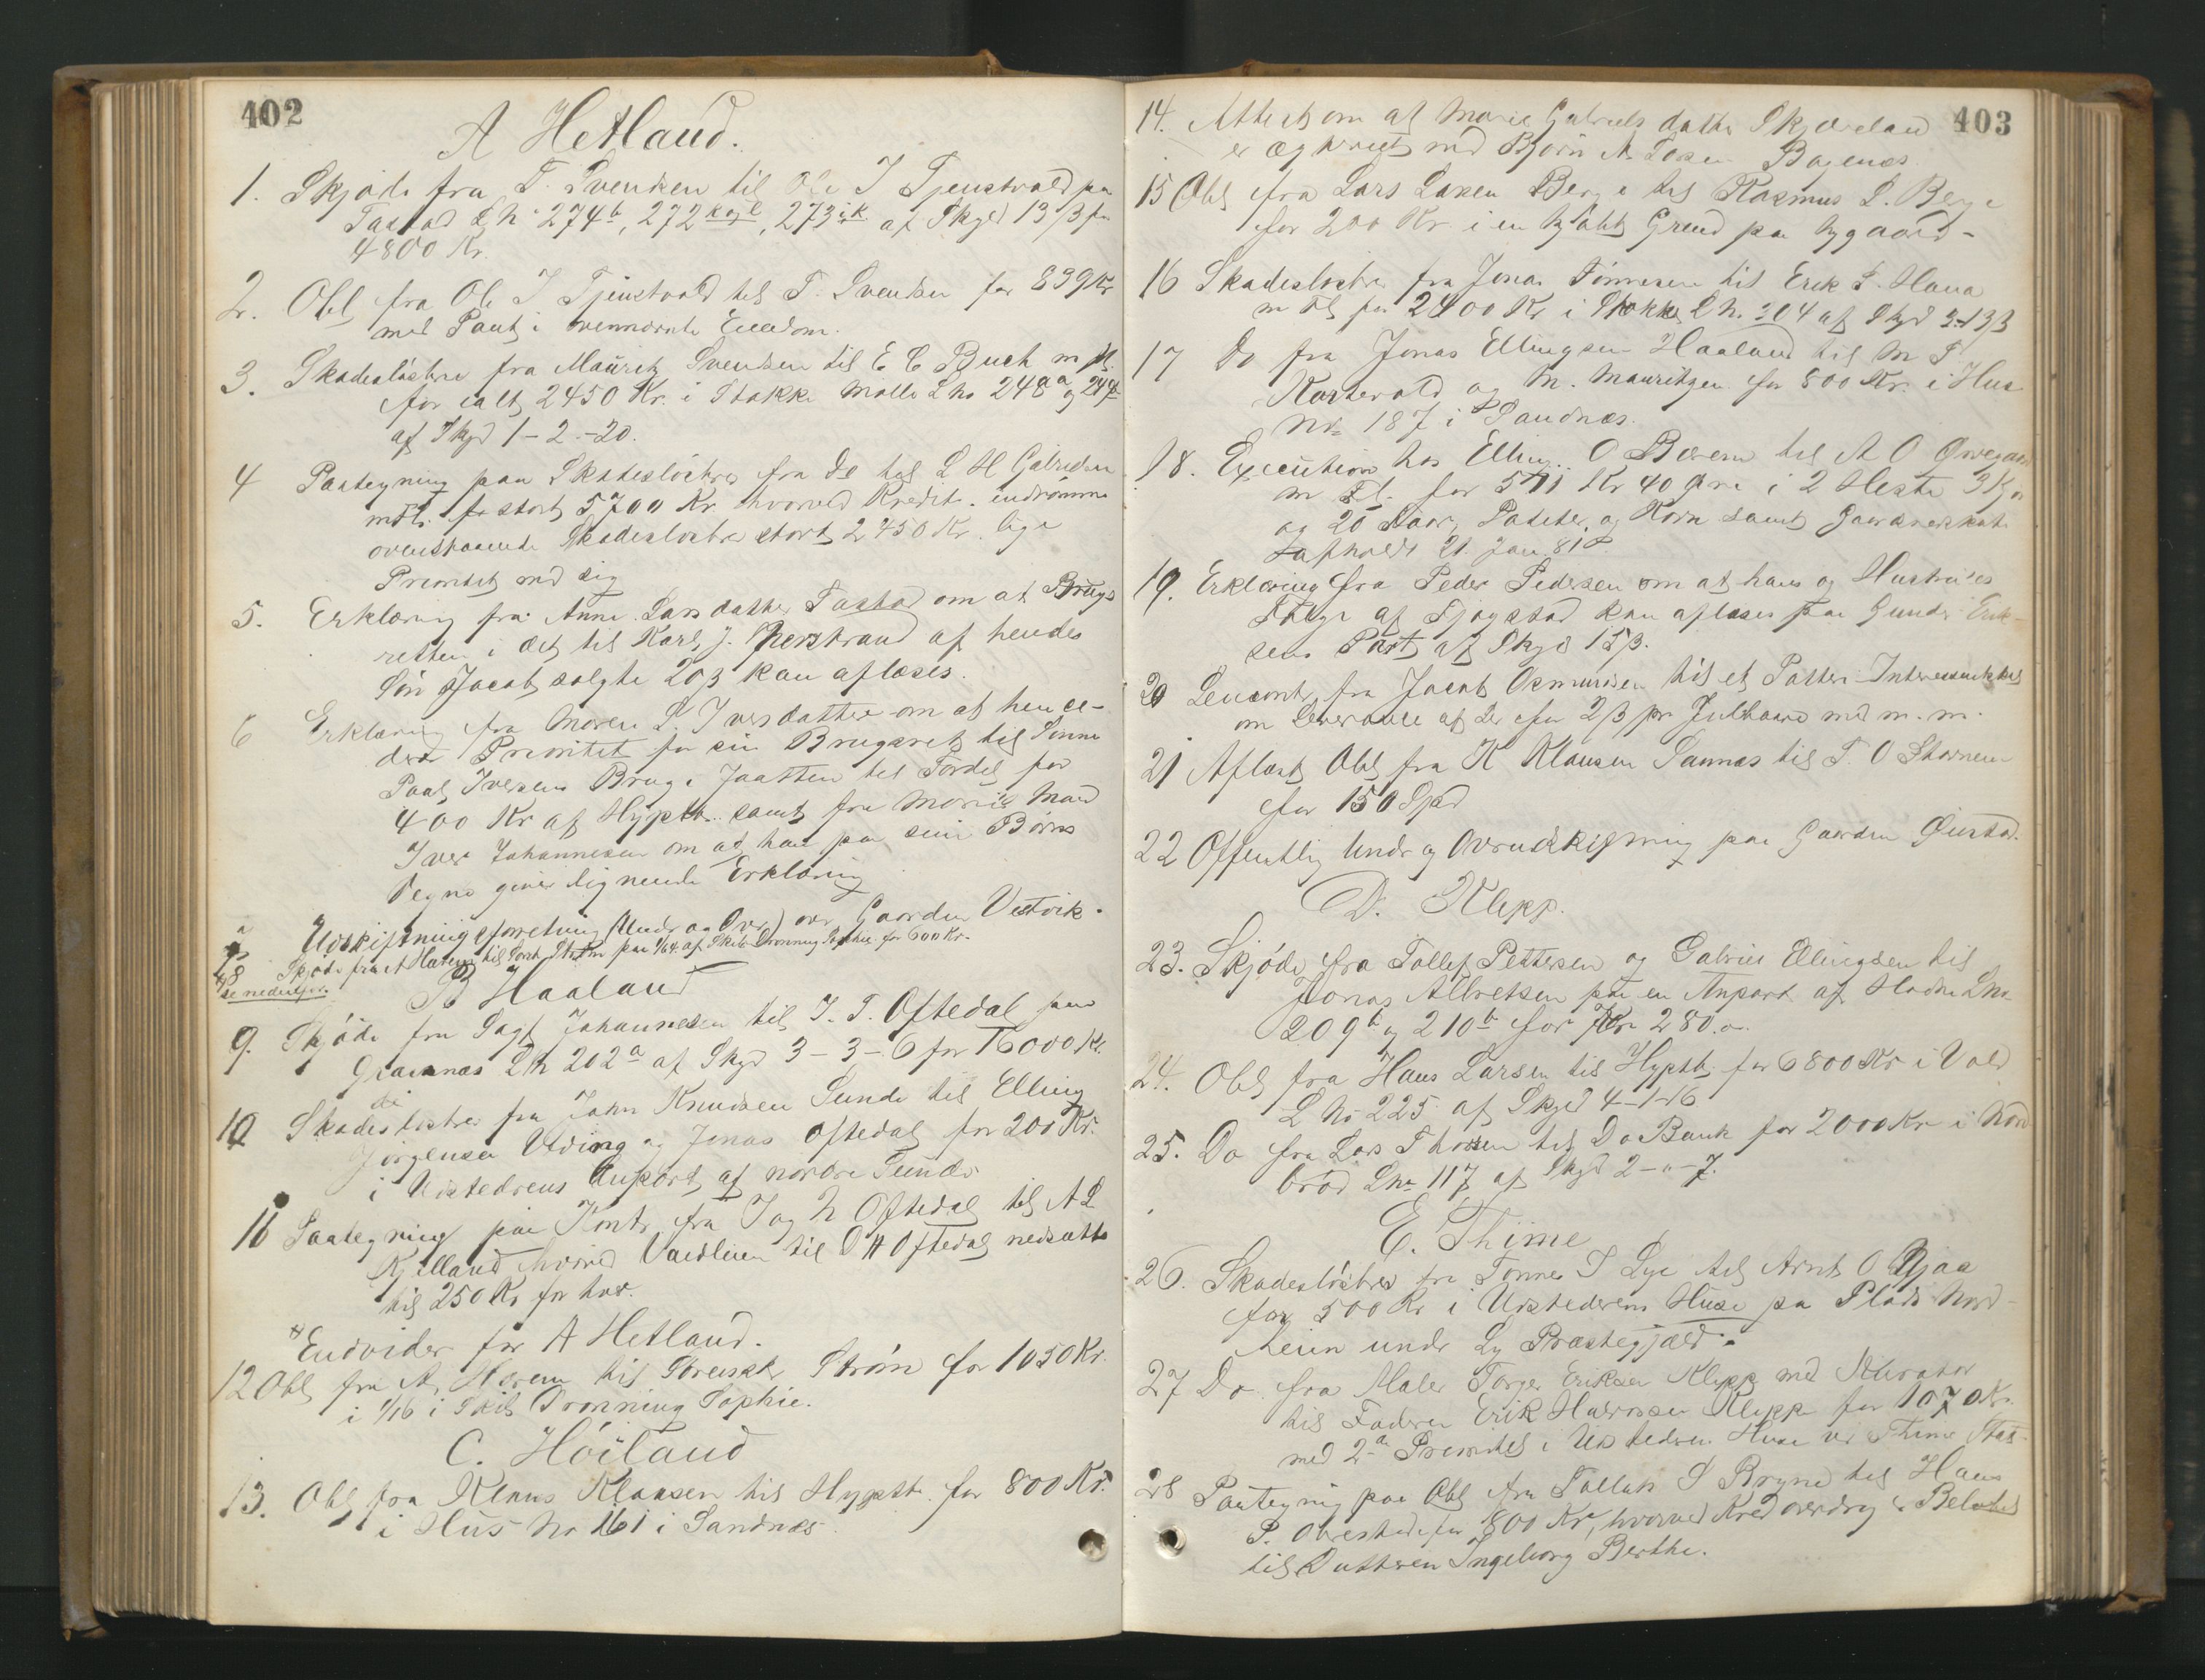 402
A Hetland.
1. Skjøde fra T. Svendsen til Ole J Tjensvold paa
Tastad L N 274b, 272 k og l, 273 i k af Skyld 13 β for
4800 Kr.
2. Obl fra Ole J Tjensvold til T. Svendsen for 839 Kr
med Pant i ovennævnte Eiendom.
3. Skadesløsbrev fra Mauritz Svendsen til E C Buch m fl.
for ialt 2450 Kr. i Stokke Mølle L No 248a og
af Skyld 1-2-20.
4 Paategning paa Skadesløsbrev fra Do til L H Gabrielsen
m fl. for stort 5700 Kr hvorved Kredit. indrømme
ovenstaaende Skadesløsbrev stort 2450 Kr. lige
Prioritet med sig
5. Erklæring fra Anne Larsdatter Tastad om at Brugs
retten i det til Karl J. Sherstrand af hendes
Søn Jacob solgte 20 β kan aflæses.
6 Erklæring fra Maren L. Iversdatter om at hun ce-
derer Prioritet for sin Brugsret til Sønnen
Paul Iversens Brug i Jaatten til Fordel for
400 Kr af Hypthb. samt fra Mands Mand
Iver Johannesen om at han paa sine Børns
Vegne giver lignende Erklæring
7 Udskiftningsforretning (Under og Over) over Gaarden Vestvik.
8 Skjøde fra A Haaven til Sørensk Strøm paa 1/64 af Skib Dronning Sophie for 600 Kr.
se nedenfor.
B Haaland
9. Skjøde fra Sagf. Johannesen til J. T. Oftedal paa
Grannæs L N 202a af Skyld 3-3-6 for 16000 Kr.
10 Skadesløsbrev fra John Knudsen Sunde til Elling
Jørgensen Utvig og Jonas Oftedal for 200 Kr.
i Udstederens Anpart af nordre Sunde
11 Paategning paa Kontr. fra J og N Oftedal til A L
Kjelland hvorved Vardlien til O H Oftedal nedsættes
til 250 Kr for hver.
Endvider for A Hetland.
12 Obl fra A. Haaven til Sørensk Strøm for 1050 Kr.
i 1/16 i Skib Dronning Sophie.
C. Høiland
13. Obl fra Klaus Klausen til Hypthb. for 800 Kr.
i Hus No 161 i Sandnæs.
403
14. Attest om at Marie Gabrielsdatter Skjæveland
er ægteviet med Bjørn A. Larsen Bogenæs
15 Obl fra Lars Larsen Berge til Rasmus L. Berge
for 200 Kr i en kjøbt Grund paa Nygaard -
16 Skadesløsbrev fra Jonas Tønnesen til Erik S. Hana
m Fl for 2400 Kr i Stokke L N. 304 af Skyld 3-13 β
17 Do fra Jonas Ellingsen Haaland til M P
Kartevold og M. Mauritzen for 800 Kr. i Hus
No 187 i Sandnæs.
18. Execution hos Elling O Bærem til A O
m Fl. for 511 Kr 40 Øre i 2 Heste 3 Kjør
og 20 Faar, Poteter, og Korn samt Gaardsredskab
afholdt 21. Jan. 81
19. Erklæring fra Peder Pedersen om at hans og Hustrues
Følge af Fjogstad kan aflæses paa Gunder Erik-
sens Part af Skyld 15 β.
20 Leiecontr. fra Jacob Osmundsen til et Potteri-Interessentskab
om Leverance af Ler for 2 β pr Julhaard med m. m.
21 Aflæst Obl fra K Klausen Sannæs til T. O Skarnem
for 150 Spd
22 Offentlig Under og Overudskiftning paa Gaarden
D. Klepp.
23. Skjøde fra Tollef Pettersen og Gabriel Ellingsen til
Jonas Albretsen paa en Anpart af Hodne L no
209b og 210b for Kr 280.
24. Obl fra Hans Larsen til Hypthb. for 6800 Kr i Vold
L No 225 af Skyld 4-1-16
25. Do fra Lars Thorsen til Do Bank for 2000 Kr i Nord
brød L no 117 af Skyld 2-"-7.
E. Thime
26. Skadesløsbrev fra Tønnes T Lye til Arnt O Njaa
for 500 Kr i Udstederens Huse paa Plads Nord-
heim under Ly Præstegjæld.
27 Do fra Maler Torger Eriksen Klepp med Kurator
til Faderen Erik Halvorsen Klepp for 1070 Kr.
med 2den Prioritet i Udstederens Huse ved Thime Stas-
28 Paategning paa Obl fra Tollak S Bryne til Hans
P. Obrestad for 800 Kr, hvorved Kred overdrag er Beløbet
til Datteren Ingeborg Berthe.